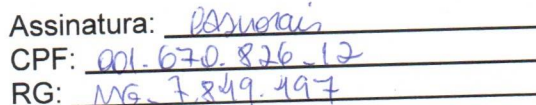 Assinatura:
CPF: 001.670.826-12
RG: MG-7.849.497